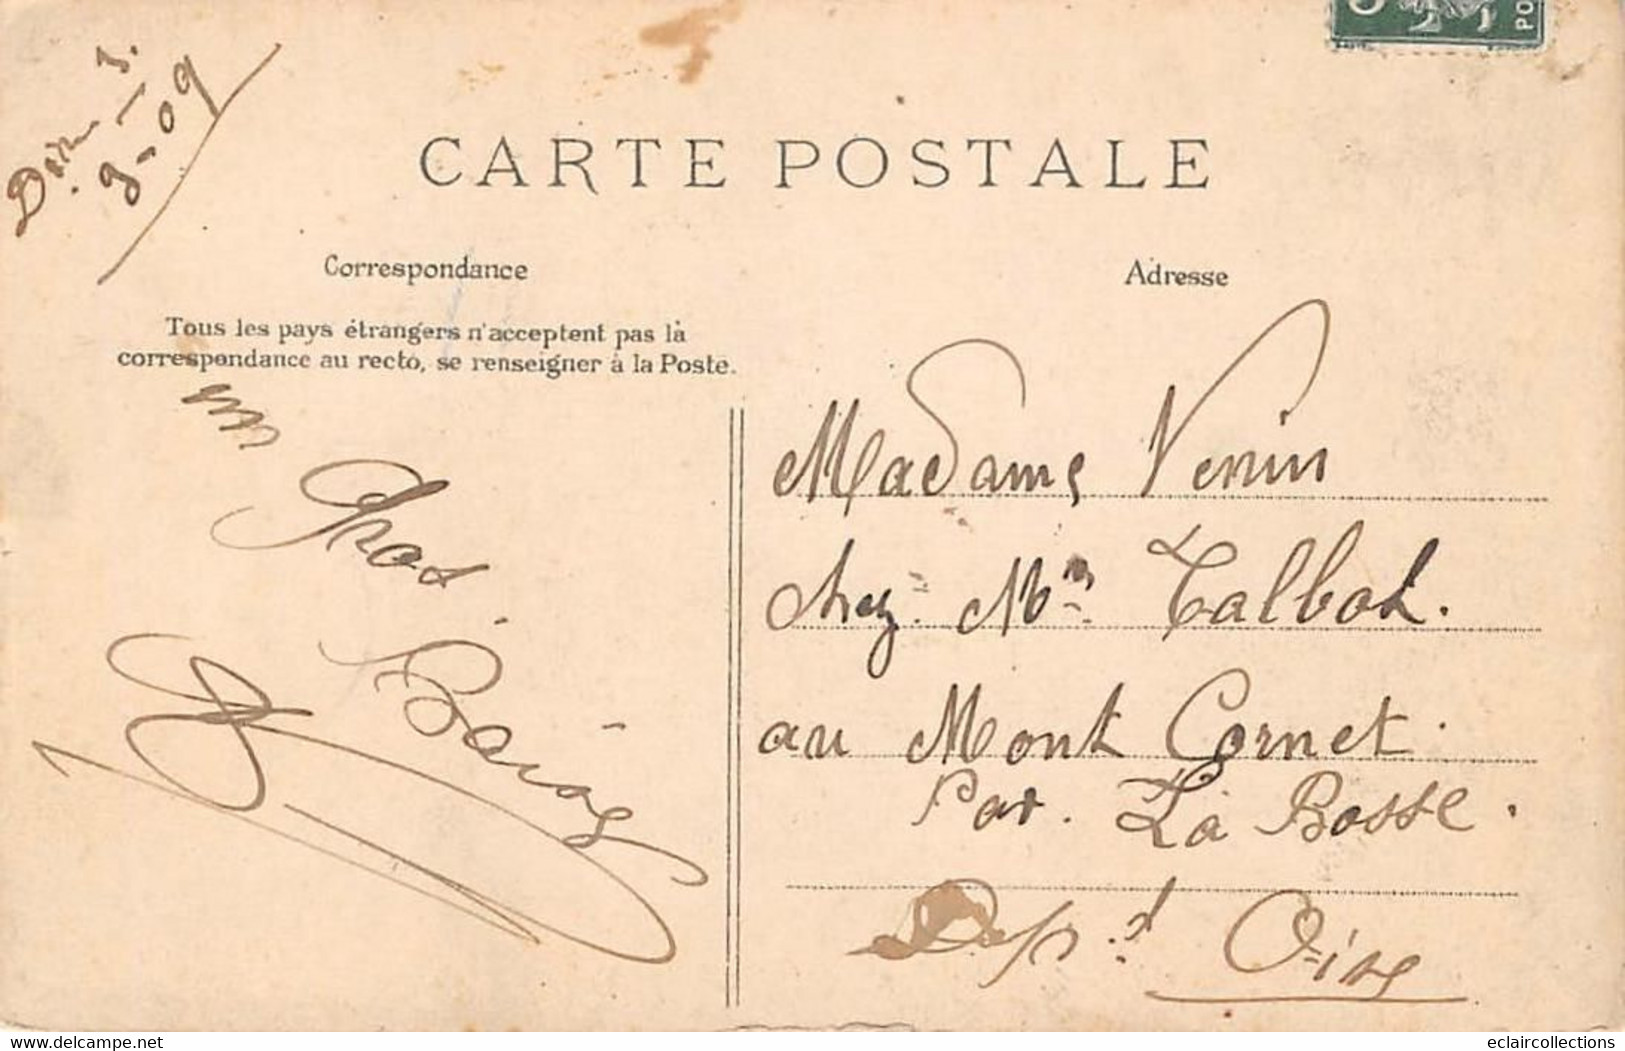 CARTE POSTALE
Correspondance
Tous les pays étrangers n'acceptent pas la
correspondance au recto, se renseigner à la Poste.
un
Gros
Baiser
9-09
Adresse
Madame Venin
chez Mm Talbot.
au Mont Cornet.
Par. La Bosse.
Dép.t Oise
PO
eclaircollections